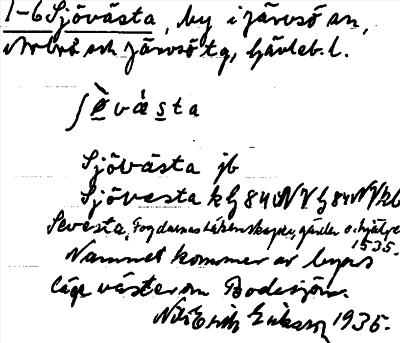 1-6 Sjövästa, by i Järvsö sn,
och Järvsö tg, Gävleb. l.
Sjövästa jb
Sjövesta
Sevesta, Fogdarnas räkenskaper, gärder o. hjälper
1535.
Namnet kommer av byns
läge väster om Bodasjön.
Nils Erik Eriksson 1935.